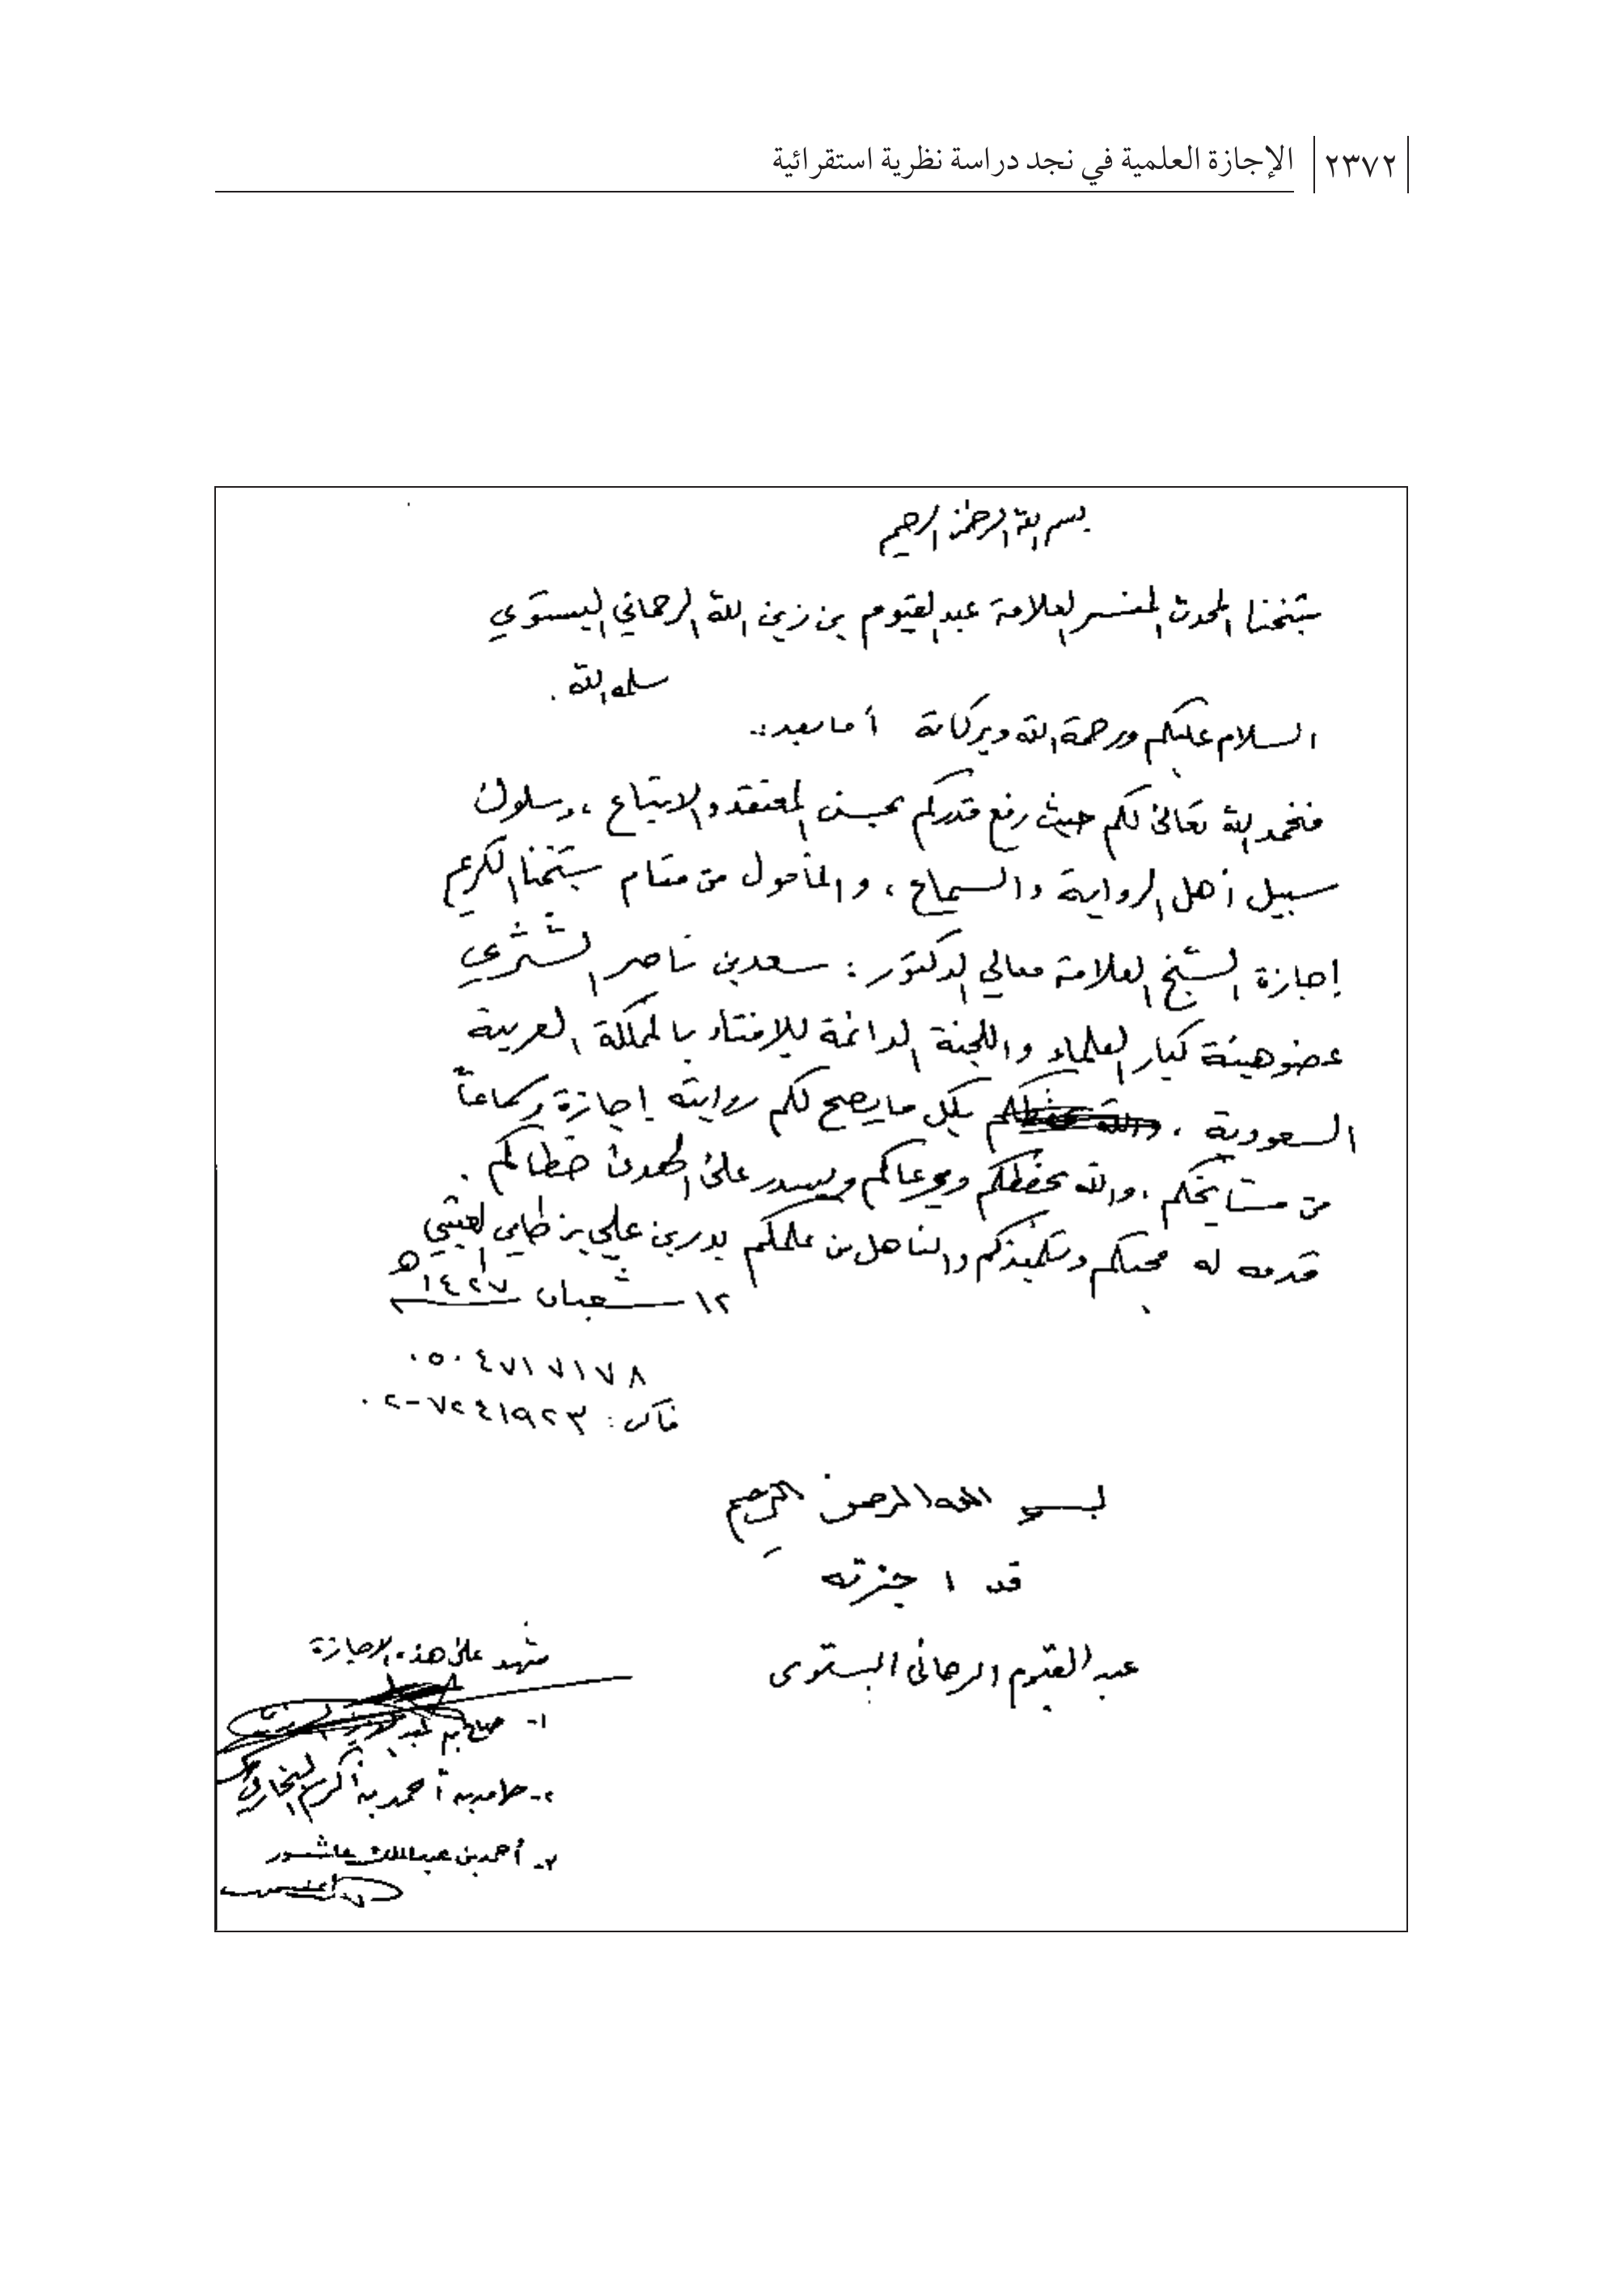 ٢٣٧٢ الإجازة العلمية في نجد دراسة نظرية استقرائية
بسم الله الرحمن الرحيم
شيخنا المحدث المفسر العلامة عبد القيوم بن زين الله الرحماني البستوي
سلمه الله .
السلام عليكم ورحمة الله وبركاته أما بعد :.
فنحمد الله تعالى لكم حيث رفع قدركم بحسن المعتقد والاتباع ، وسلوك
سبيل أهل الرواية والسماع ، والمأمول من مقام شيخنا الكريم
إجازة الشيخ العلامة معالي الدكتور : سعد بن ناصر الشثري
عضو هيئة كبار العلماء واللجنة الدائمة للافتاء بالمملكة العربية
السعودية ، والله يحفظكم بكل ما يصح لكم روايته إجازة وسماعاً
من مشايخكم ، والله يحفظكم ويرعاكم ويسدد على الهدى خطاكم .
قدمه له محبكم وتلميذكم والناهل من علمكم بدر بن علي بن طامي العتيبي
١٢ شعبان ١٤٢٧هـ
٠٥٠٤٧١٧١٧٨
فاكس : ٠٢-٧٢٤١٩٢٣
بسم الله الرحمن الرحيم
قد اجزته
عبد القيوم الرحماني البستوى
شهد على هذه الإجازة
١-
٢- حامد بن أحمد بن أكرم البخاري
٣- أحمد بن عبدالملك عاشور